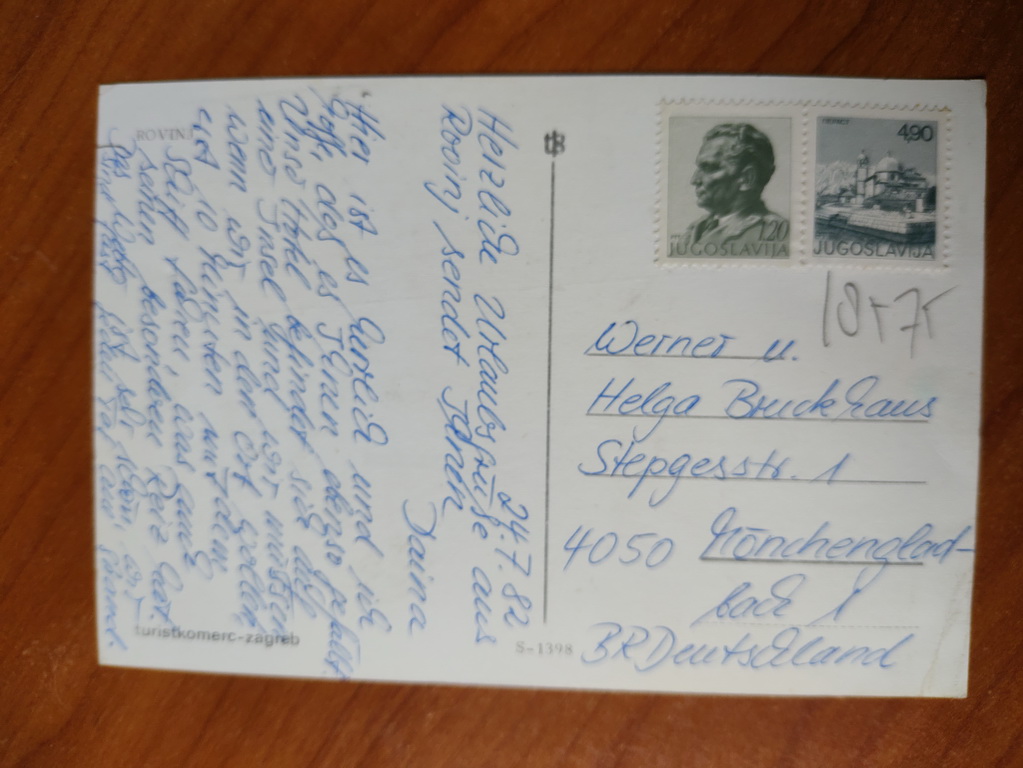 ROVINJ
24.7.82
Herzliche Urlaubsgrüße aus
Rovinj sendet Ihnen
Daina
Hier ist es herrlich und ich
hoffe, daß es Ihnen ebenso gefällt.
Unser Hotel befindet sich auf
einer Insel und wir müssen
wenn wir in den Ort wollen
erst 10 Minuten mit dem
Schiff fahren, was auch
seinen besonderen Reiz hat.
Das Wetter ist sehr schön, wir
turistkomerc-zagreb
S-1398
1.20
JUGOSLAVIJA
4,90
JUGOSLAVIJA
Werner u.
Helga Bruckhaus
Stepgesstr. 1
4050 Mönchenglad-
bach 1
BRDeutschland